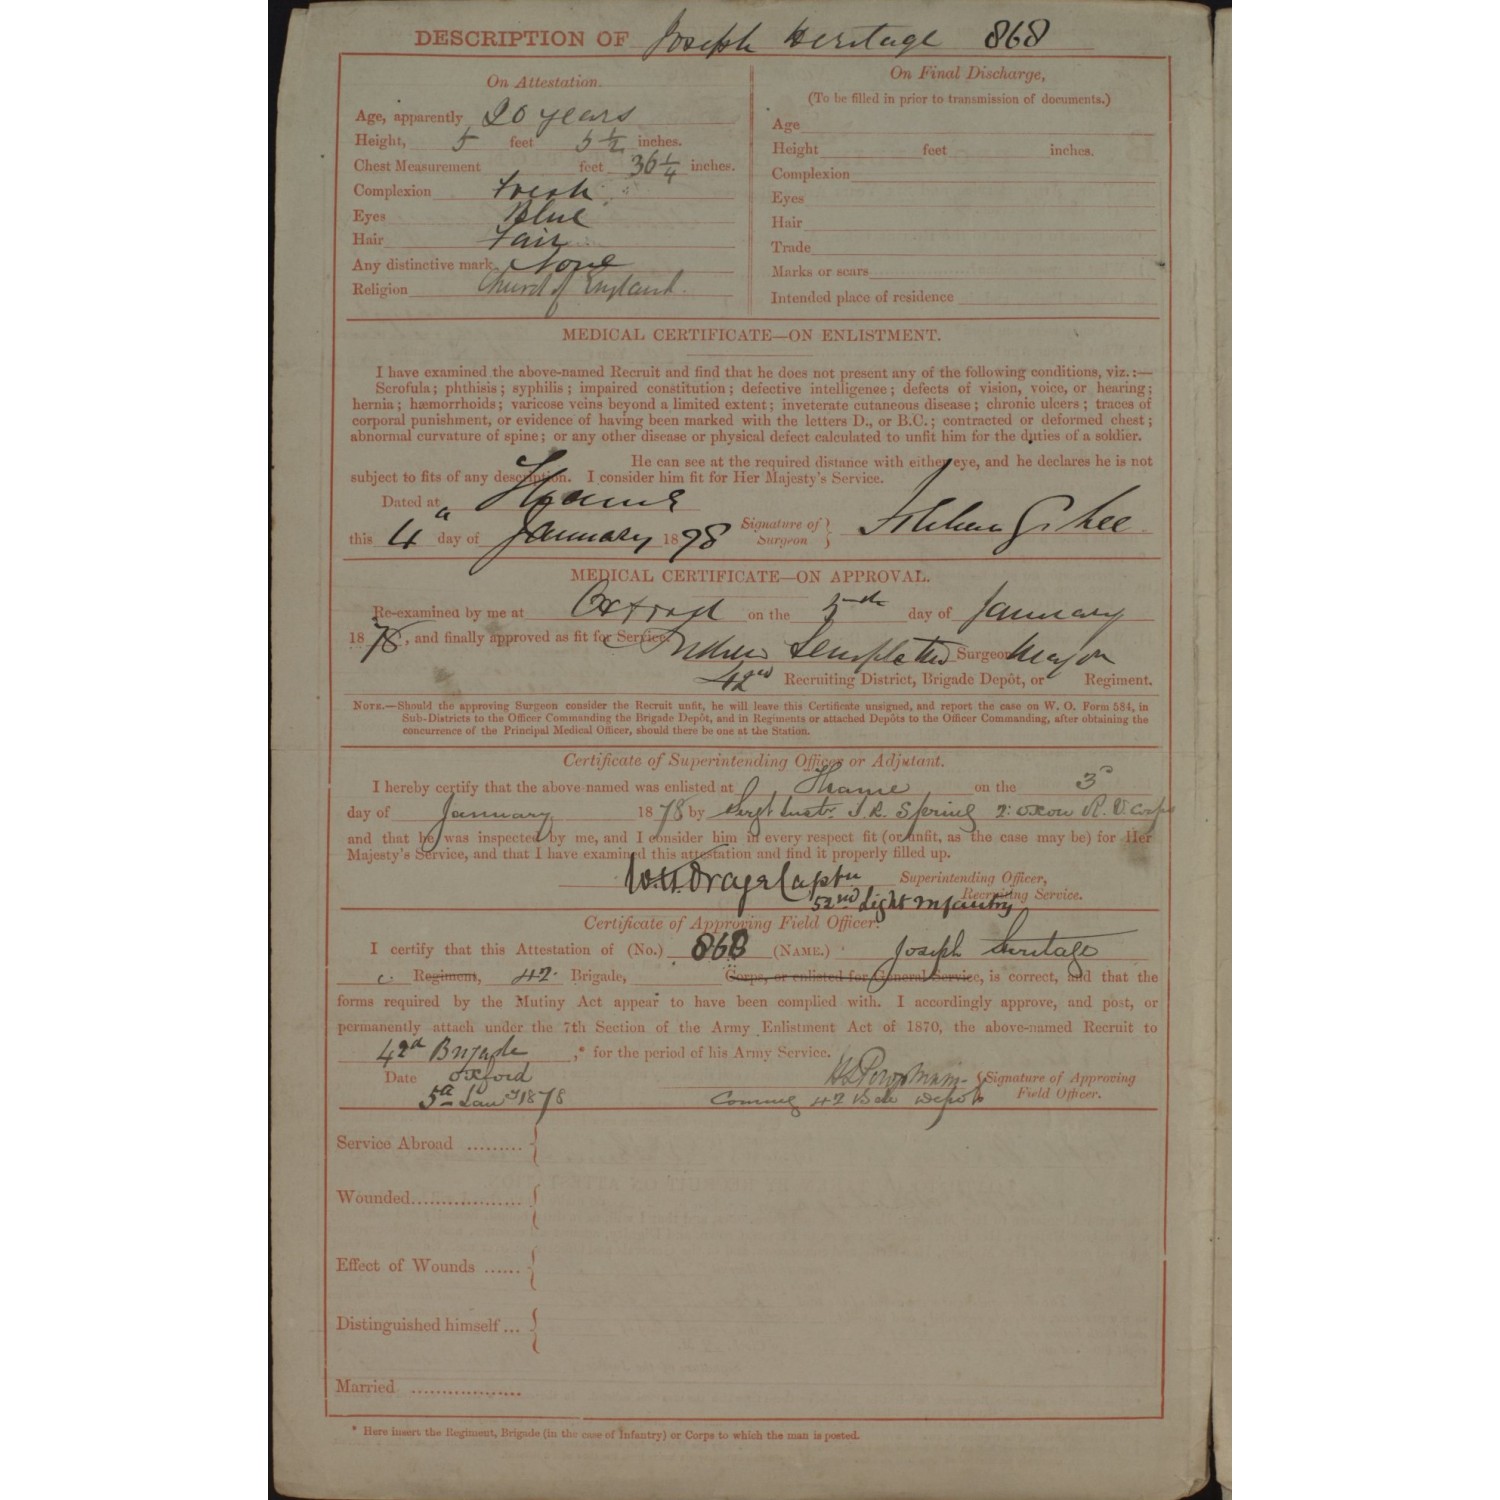 DESCRIPTION OF Joseph Heritage 868
On Attestation.
Age, apparently 20 years
Height, 5 feet 5 1/2 inches.
Chest Measurement feet 36 1/4 inches.
Complexion Fresh
Eyes Blue
Hair Fair
Any distinctive mark None
Religion Church of England
On Final Discharge,
(To be filled in prior to transmission of documents.)
Age
Height feet inches.
Complexion
Eyes
Hair
Trade
Marks or scars
Intended place of residence
MEDICAL CERTIFICATE—ON ENLISTMENT.
I have examined the above-named Recruit and find that he does not present any of the following conditions, viz.:—
Scrofula; phthisis; syphilis; impaired constitution; defective intelligence; defects of vision, voice, or hearing;
hernia; hæmorrhoids; varicose veins beyond a limited extent; inveterate cutaneous disease; chronic ulcers; traces of
corporal punishment, or evidence of having been marked with the letters D., or B.C.; contracted or deformed chest;
abnormal curvature of spine; or any other disease or physical defect calculated to unfit him for the duties of a soldier.
He can see at the required distance with either eye, and he declares he is not
subject to fits of any description. I consider him fit for Her Majesty's Service.
Dated at Thame
this 4 day of January 1878 Signature of Surgeon Lee
MEDICAL CERTIFICATE—ON APPROVAL.
Re-examined by me at Oxford on the 5th day of January
1878, and finally approved as fit for Service. Andrew Surgeon Major
42nd Recruiting District, Brigade Depôt, or Regiment.
NOTE.—Should the approving Surgeon consider the Recruit unfit, he will leave this Certificate unsigned, and report the case on W. O. Form 584, in
Sub-Districts to the Officer Commanding the Brigade Depôt, and in Regiments or attached Depôts to the Officer Commanding, after obtaining the
concurrence of the Principal Medical Officer, should there be one at the Station.
Certificate of Superintending Officer or Adjutant.
I hereby certify that the above-named was enlisted at Thame on the 3
day of January 1878 by Sergt Instr. J. R. Spring 2: Oxon R. V. Corps
and that he was inspected by me, and I consider him in every respect fit (or unfit, as the case may be) for Her
Majesty's Service, and that I have examined this attestation and find it properly filled up.
Captn Superintending Officer,
52nd Light Infantry Recruiting Service.
Certificate of Approving Field Officer.
I certify that this Attestation of (No.) 868 (NAME.) Joseph Heritage
Regiment, 42 Brigade, Corps, or enlisted for General Service, is correct, and that the
forms required by the Mutiny Act appear to have been complied with. I accordingly approve, and post, or
permanently attach under the 7th Section of the Army Enlistment Act of 1870, the above-named Recruit to
42d Brigade ,* for the period of his Army Service.
Date Oxford Signature of Approving
5 Jany 1878 42 Bde Depot Field Officer.
Service Abroad .........
Wounded..................
Effect of Wounds ......
Distinguished himself ...
Married ..................
* Here insert the Regiment, Brigade (in the case of Infantry) or Corps to which the man is posted.